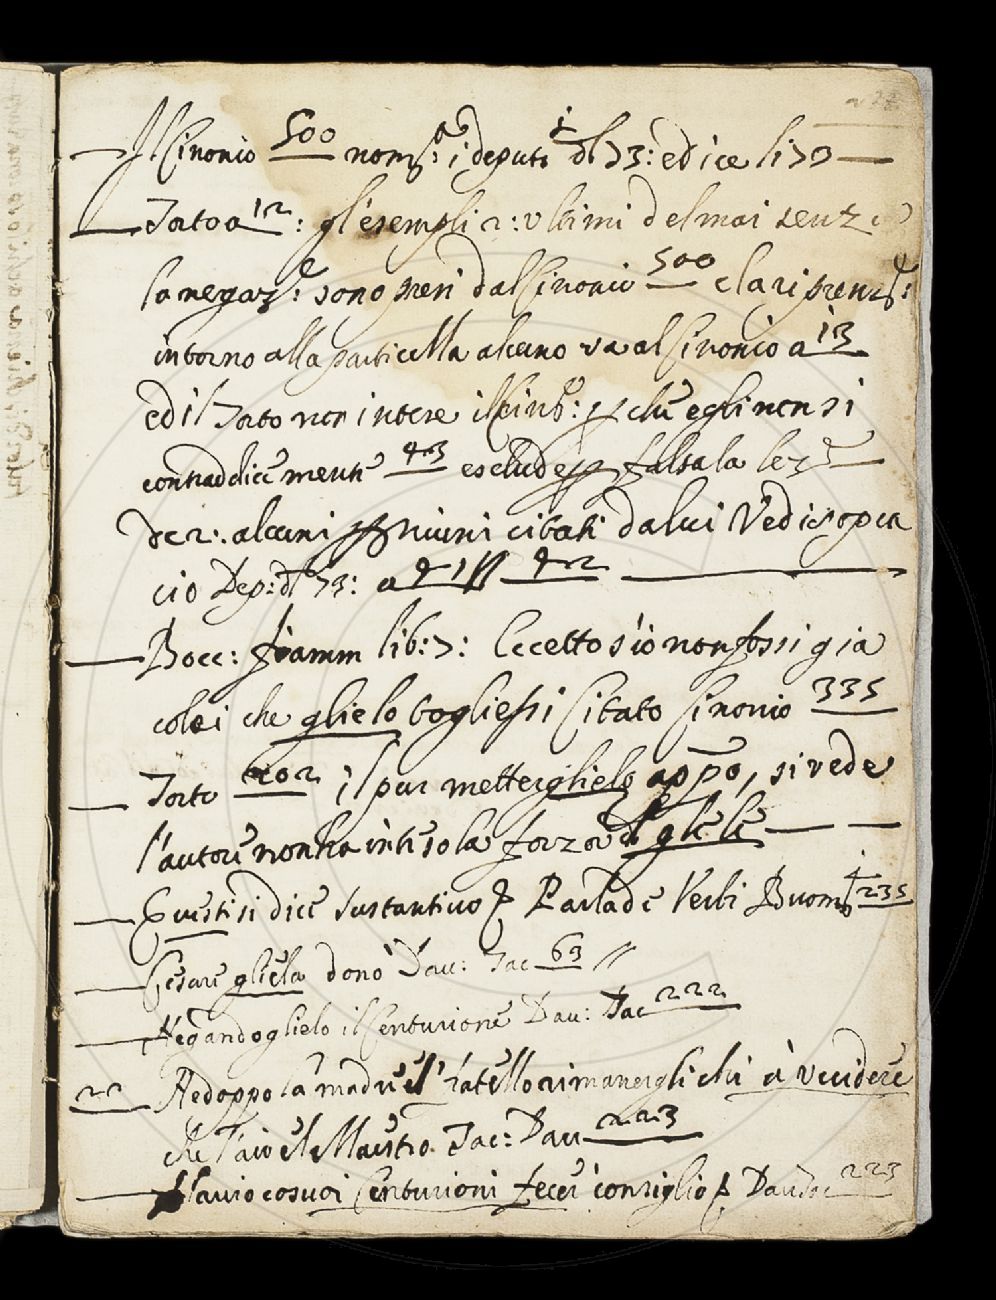 Il Cinonio 500 nom: i deputi dl 73: ed ice li 73
Torto a 12: gl'esempli 2: ultimi del mai senza
la negaz:e sono presi dal Cinonio 500
intorno alla particella alcuno va al Cinonio a 13
ed il Torto non intese il Cin: p che egli non si
contraddice mentre 43 esclude p falsa la
alcuni citati da lui Vedi
cio Dep: dl 73: a 41 // 42
Bocc: fiamm lib: 7: Eccetto s'io non fossi gia
colei che glielo togliessi Citato Cinonio 335
Torto 202 il pur metter glielo appo, si vede
l'autore non ha intesola forza d gliele
Questi si dice sustantivo p Parla de Verbi Buom 235
Cesare gliela donò Dau: Tac 63 //
Negandoglielo il Centurione Dau: Tac 222
22 Ne doppo la madre e'l fratello rimanergli chi à veccidere
che l'aio e'l Maestro. Tac: Dau 223
Flavio co suoi Centurioni fecer consiglio p Dau Tac 223